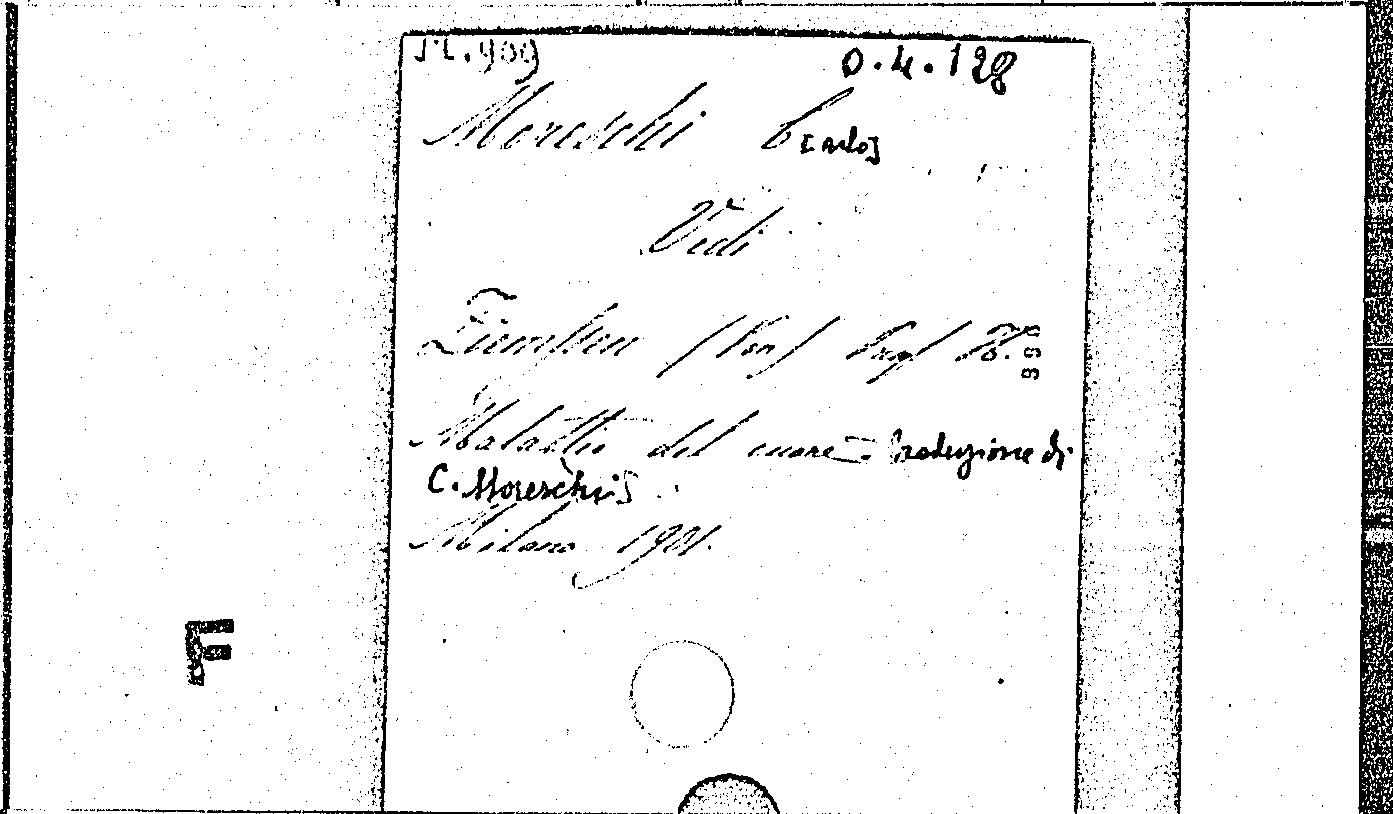 0.4.128
Moreschi C[arlo]
Vedi
Ziemssen (von) Prof H.
Malattie del cuore = traduzione di
C. Moreschi
Milano 1901.
F